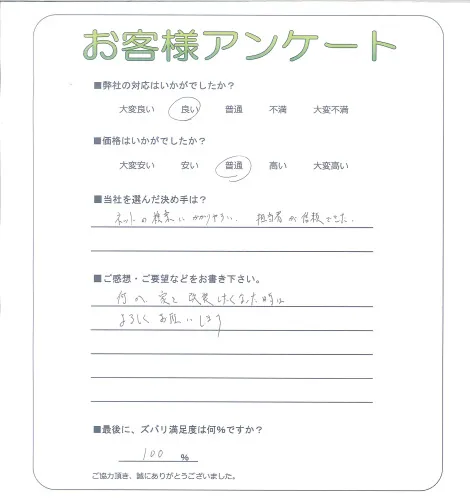 お客様アンケート
■弊社の対応はいかがでしたか？
大変良い 良い 普通 不満 大変不満
■価格はいかがでしたか？
大変安い 安い 普通 高い 大変高い
■当社を選んだ決め手は？
ネットの検索に 担当者が信頼できた.
■ご感想・ご要望などをお書き下さい。
何か、家を 改装したくなった時は
よろしくお願いします
■最後に、ズバリ満足度は何％ですか？
100 ％
ご協力頂き、誠にありがとうございました。